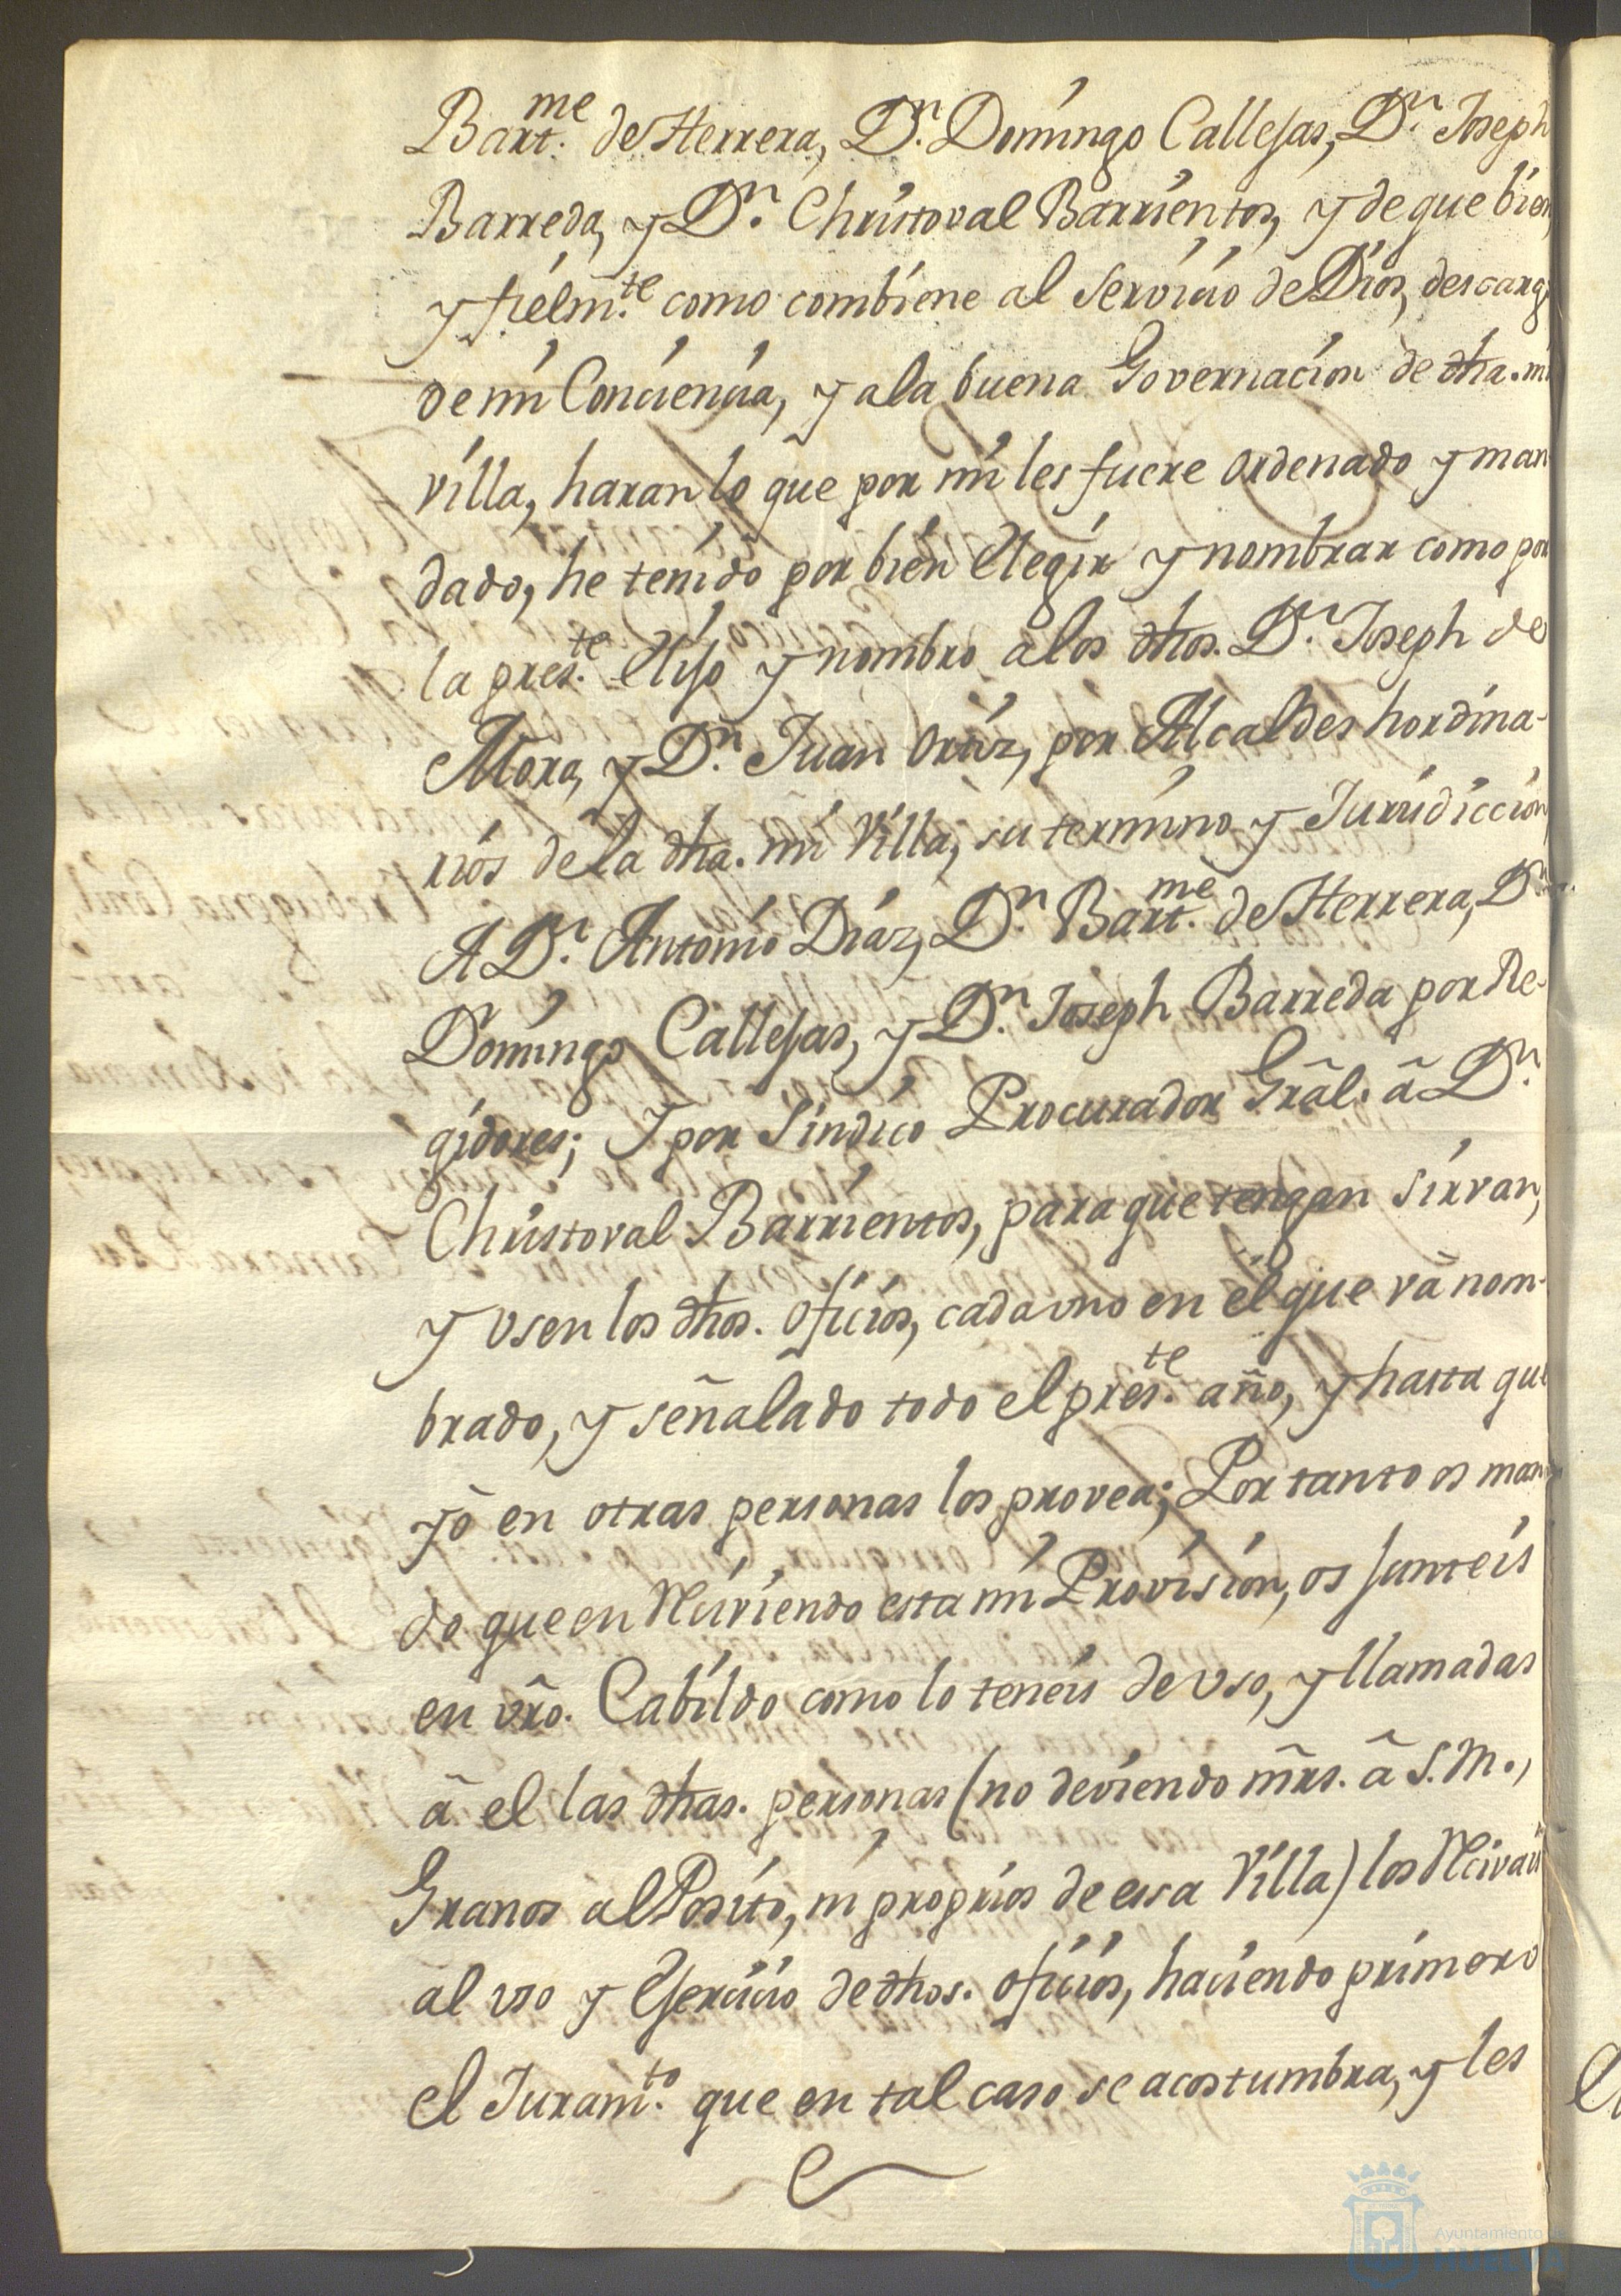 Bart.me de Herrera, Dn. Domingo Callejas, Dn. Joseph
Barreda, y Dn. Christoval Barrientos, y de que bien,
y fielm.te como combiene al Servicio de Dios, descargo
de mi Conciencia, y a la buena Governacion de dha. mi
Villa, haran lo que por mi les fuere ordenado y man
dado, he tenido por bien elegir y nombrar como por
la pres.te elijo y nombro a los dhos. Dn. Joseph de
Mora, y Dn. Juan Ortiz, por Alcaldes hordina-
rios de la dha. mi Villa, su termino y Jurisdiccion,
A Dn. Antonio Diaz, Dn. Bart.me de Herrera, Dn.
Domingo Callejas, y Dn. Joseph Barreda por Re-
gidores; Y por Sindico Procurador Grãl. â Dn.
Christoval Barrientos, para que tengan sirvan,
y Vsen los dhos. oficios, cada vno en él que vâ nom-
brado, y señalado todo el pres.te año, y hasta que
yo en otras personas los provea; Por tanto os man
do que en Reciviendo esta mi Provision, os junteis
en vrõ. Cabildo como lo teneis de vso, y llamadas
â el las dhas. personas (no deviendo mãrs. â S.M.,
Granos al Posito, ni proprios de essa Villa) los Recivais
al vso y Exercicio de dhos. oficios, haciendo primero
el Juram.to que en tal caso se acostumbra, y les
Ayuntamiento de
HUELVA